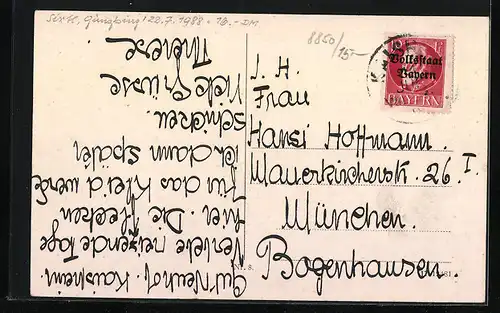 Türk. Günzburg 22.7.1988 13.-DM
8850/15-
10
Volksstaat
Bayern
BAYERN
Gut Neuhof. Kaisheim.
Verlebe reizende Tage
hier. Die Flecken
für das Kleid werde
ich dann später
schicken.
Viele Grüsse
Therese
I. H.
Frau
Hansi Hoffmann.
Mauerkircherstr. 26 I.
München.
Bogenhausen.